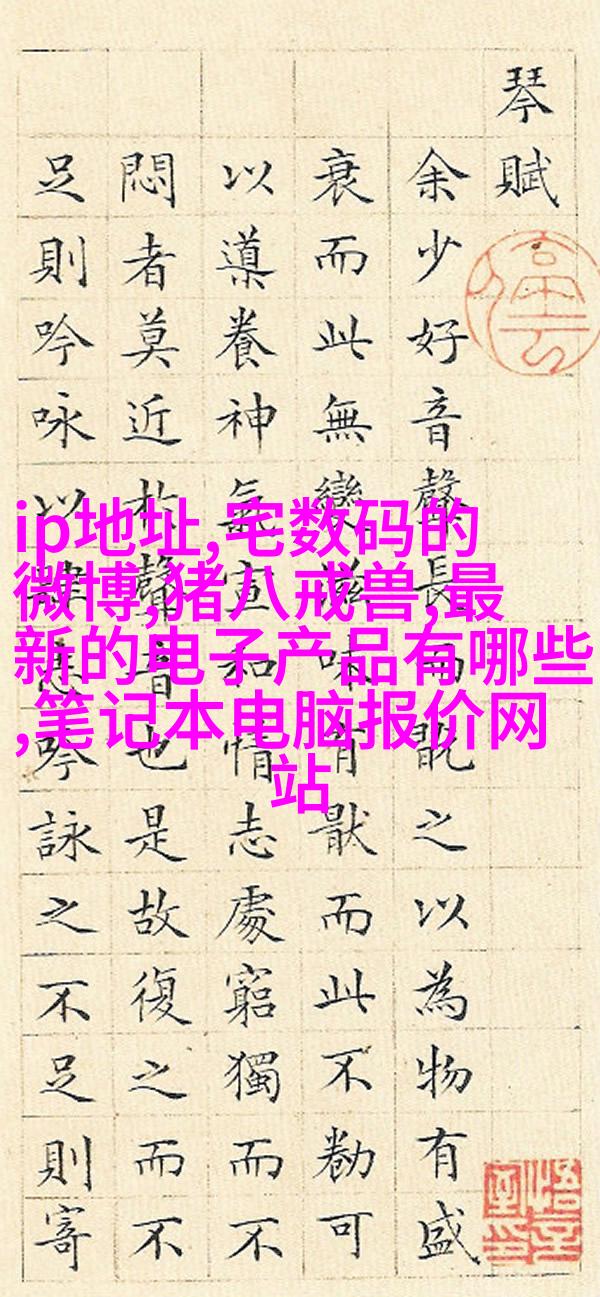 琴賦
余少好音聲長而翫之以為物有盛
衰而此無變滋味有猒而此不勌可
以導養神氣宣和情志處窮獨而不
悶者莫近於聲音也是故復之而不
足則吟咏以肆吟詠之不足則寄
停云
悟言室印
ip地址,宅数码的
微博,猪八戒兽,最
新的电子产品有哪些
,笔记本电脑报价网
站